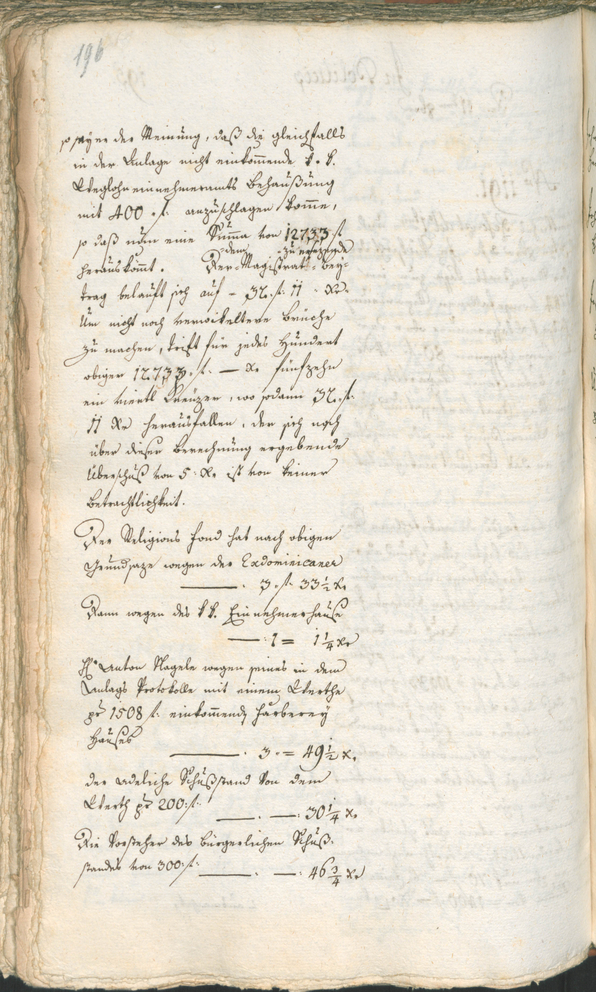 196
so seye er der Meinung, daß die gleichfalls
in der Anlage nicht einkommende k. k.
Weglohneinnehmeramts Behaußung
mit 400 f. anzuschlagen komme,
so daß nun eine Summa von 12733 f
herauskömmt. Der dem Magistrat zu ersetzende Bey-
trag belauft sich auf – 32 f. 11 Xr.
Um nicht noch verwickeltere Brüche
zu machen, trift für jedes Hundert
obiger 12733 f. — Xr fünfzehn
ein viertl Kreuzer, wo sodann 32 f.
11 Xr herausfallen, der sich nach
über dieser Berechnung ergebende
Überschuß von 5 Xr ist von keiner
Betrachtlichkeit.
Der Religions Fond hat nach obigen
Grundsaze wegen der Exdominicaner
— . 3 f 33 1/2 Xr
Dann wegen des k k. Einnehmerhause
— : 1 = 1 1/4 Xr
H. Anton Nagele wegen seines in dem
Anlags Protokolle mit einem Werthe
pr 1508 f. einkommend Färberey
Hauses
— . 3 = 49 1/2 X.
der adeliche Schußstand von dem
Werth pr 200 f.
— — . 30 1/4 X.
Die Vorsteher des bürgerlichen Schuß-
standes von 300 f. — — . 46 3/4 Xr